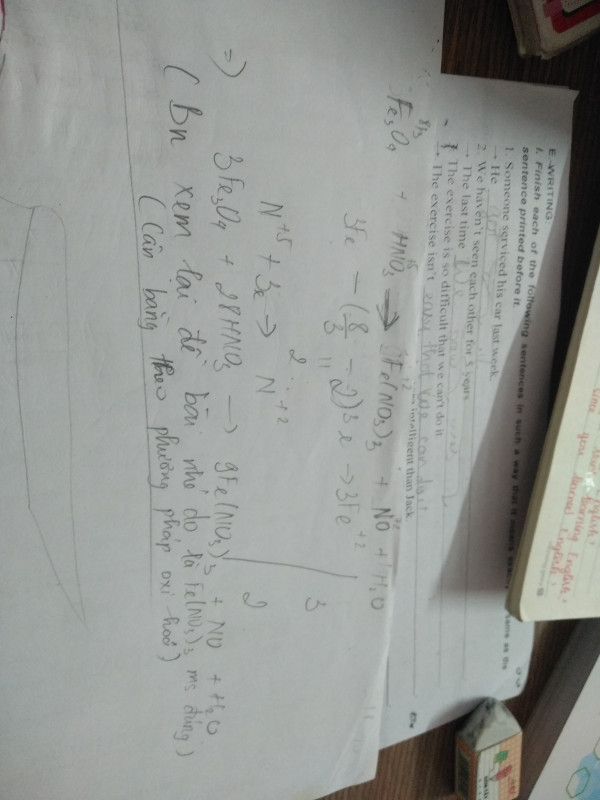 E. WRITING
I. Finish each of the following sentences in such a way that it means exactly the same as the
sentence printed before it.
1. Someone serviced his car last week.
→ He
2. We haven't seen each other for 5 years
→ The last time we saw
The exercise is so difficult that we can't do it
→ The exercise isn't easy that we can do it
intelligent than Jack.
Fe₃O₄ + HNO₃ → Fe(NO₃)₃ + NO + H₂O
3Fe - (8/3 - 2)3e → 3Fe⁺²
2
N⁺⁵ + 3e → N⁺²
3
2
=) 3Fe₃O₄ + 28HNO₃ → 9Fe(NO₃)₃ + NO + H₂O
(Bn xem lại đề bài nhé do là Fe(NO₃)₃ ms đúng)
(Cân bằng theo phương pháp oxi hoá)
you learned English?
learning English?